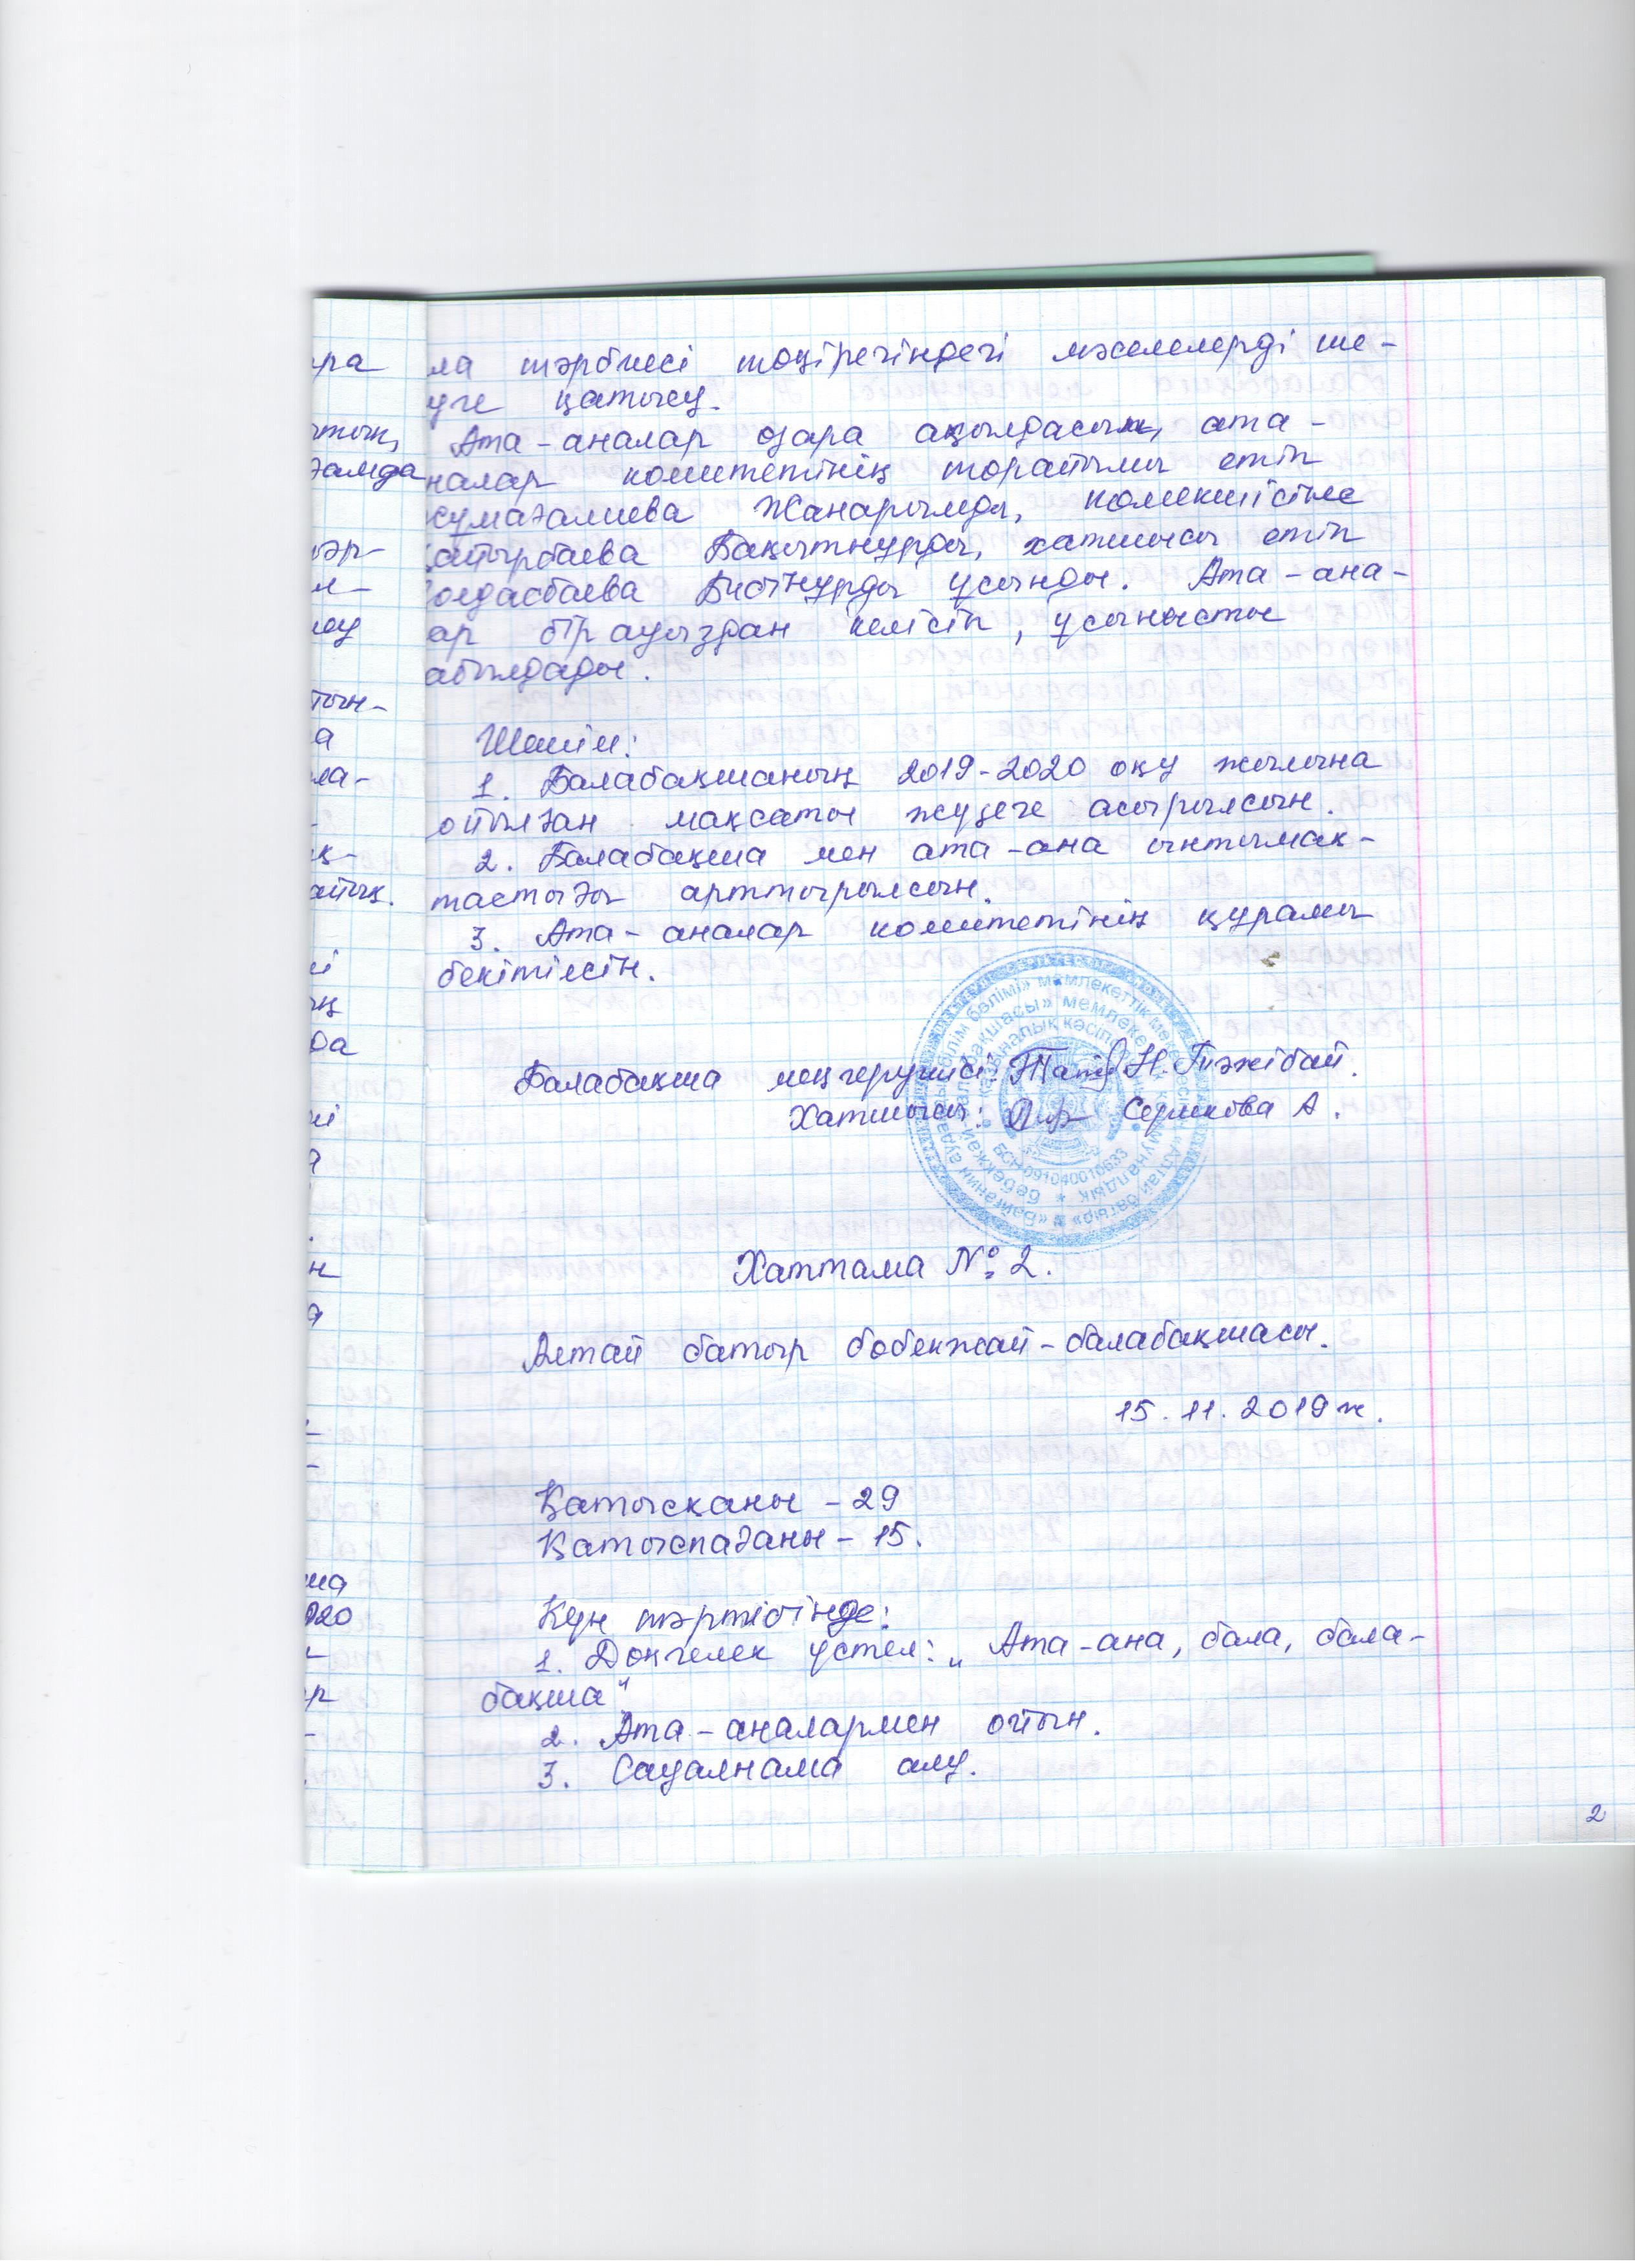 ла тәрбиесі төңірегіндегі мәселелерді ше-
уге қатысу.
Ата-аналар өзара ақылдасып, ата-
налар комитетінің төрайымы етіп
жумағалиева Жанарымды, көмекшісіне
қайырбаева Бақытнұрды, хатшысы етіп
олдасбаева Бибінұрды ұсынды. Ата-ана-
ар бірауыздан келісіп, ұсынысты
абылдады.
Шешім:
1. Балабақшаның 2019-2020 оқу жылына
ойылған мақсаты жүзеге асырылсын.
2. Балабақша мен ата-ана ынтымақ-
тастығы арттырылсын.
3. Ата-аналар комитетінің құрамы
бекітілсін.
Балабақша меңгерушісі: Н. Тәжібай.
Хатшысы: Серикова А.
БСН 091040010633
Хаттама №2.
Алтай батыр бөбекжай-балабақшасы.
15.11.2019 ж.
Қатысқаны - 29
Қатыспағаны - 15.
Күн тәртібінде:
1. Дөңгелек үстел: „Ата-ана, бала, бала-
бақша"
2. Ата-аналармен ойын.
3. Сауалнама алу.
2